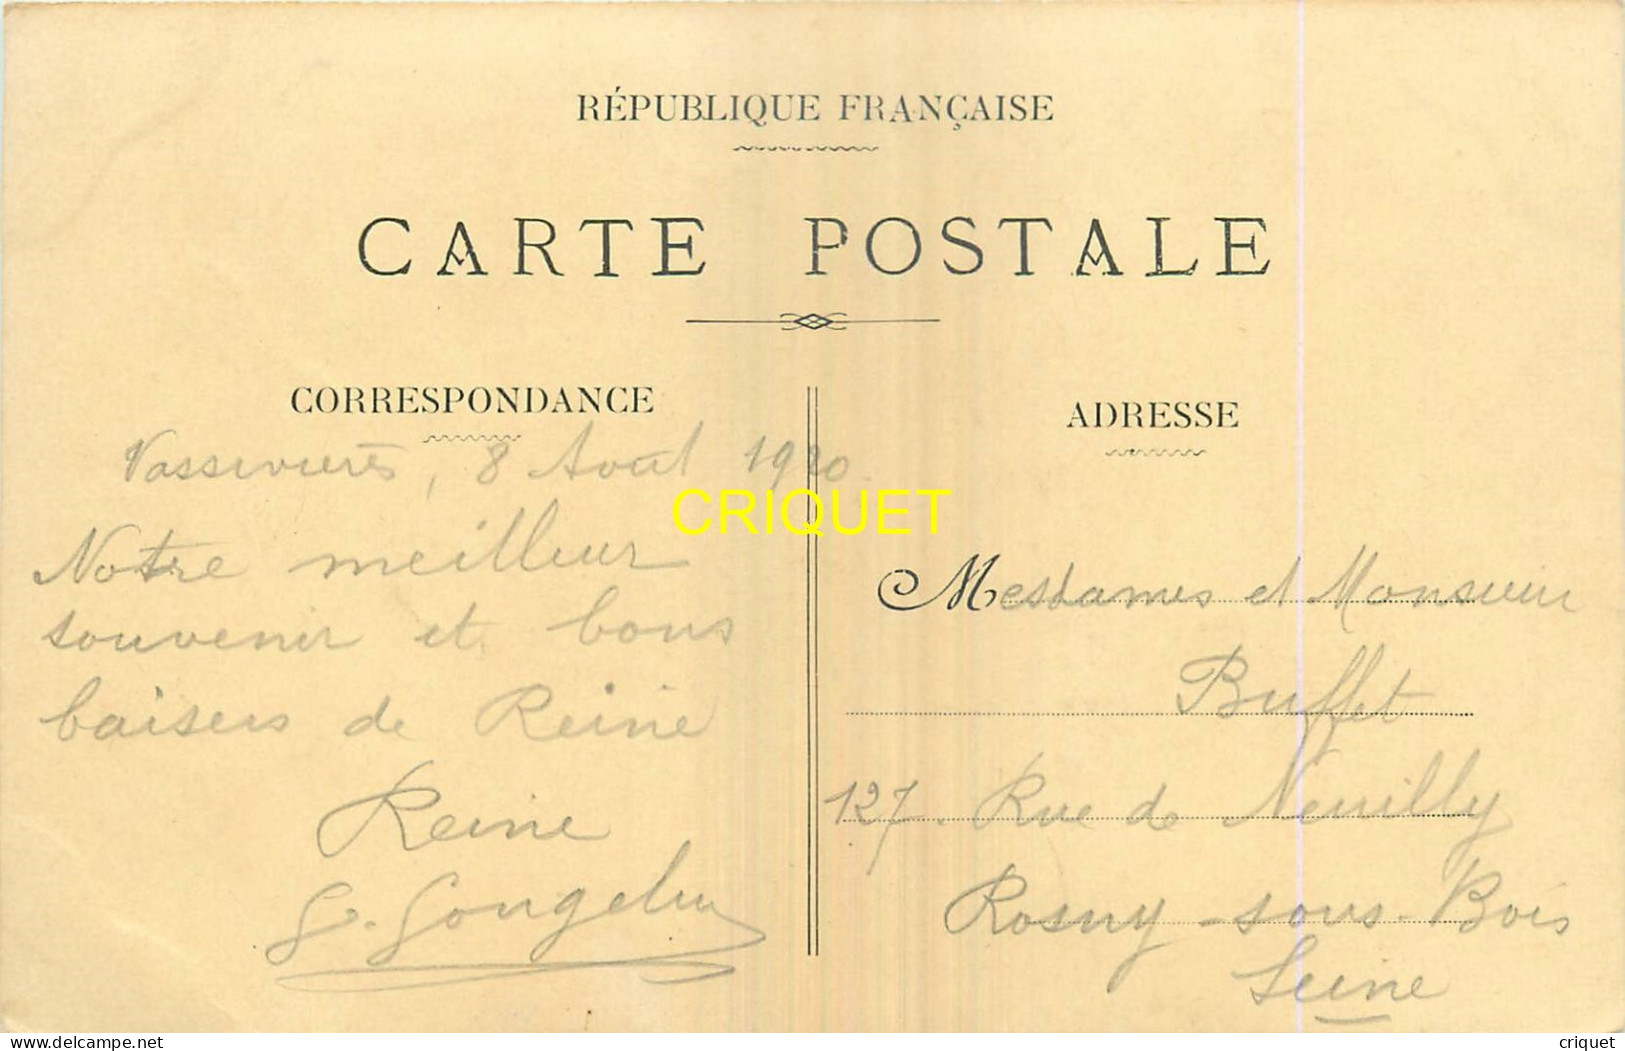 RÉPUBLIQUE FRANÇAISE
CARTE POSTALE
CORRESPONDANCE
Vassivières, 8 Août 1920.
Notre meilleur
souvenir et bons
baisers de Reine
Reine
G.
ADRESSE
Mesdames et Monsieur
Buffet
127. Rue de Neuilly
Rosny-sous-Bois
Seine
CRIQUET
delcampe.net
criquet